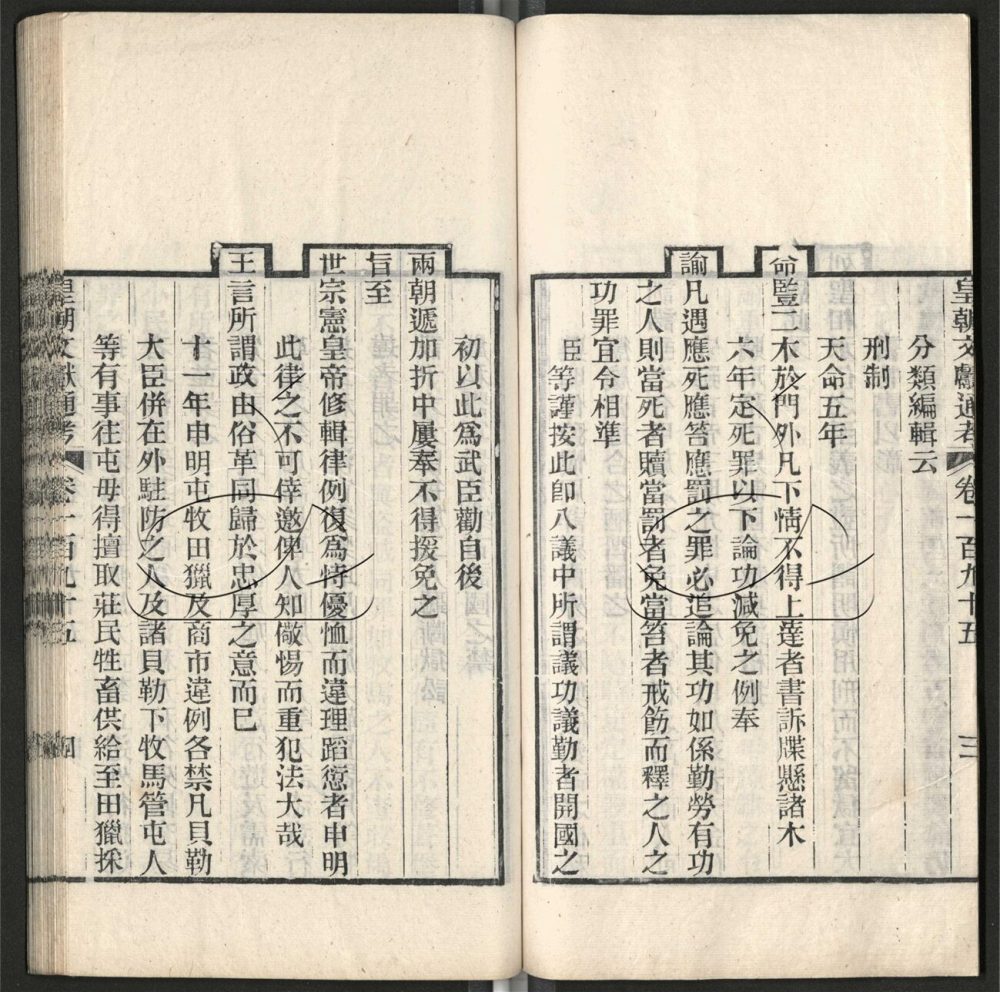 皇朝文獻通考 卷一百九十五 三
分類編輯云
刑制
天命五年
命豎二木於門外凡下情不得上達者書訴牒懸諸木
六年定死罪以下論功減免之例奉
諭凡遇應死應笞應罰之罪必追論其功如係勤勞有功
之人則當死者贖當罰者免當笞者戒飭而釋之人之
功罪宜令相準
臣等謹按此卽八議中所謂議功議勤者開國之
初以此爲武臣勸自後
兩朝遞加折中屢奉不得援免之
旨至
世宗憲皇帝修輯律例復爲特優恤而違理蹈愆者申明
此律之不可倖邀俾人知儆惕而重犯法大哉
王言所謂政由俗革同歸於忠厚之意而已
十一年申明屯牧田獵及商市違例各禁凡貝勒
大臣併在外駐防之人及諸貝勒下牧馬管屯人
等有事往屯毋得擅取莊民牲畜供給至田獵採
皇朝文獻通考 卷一百九十五 四